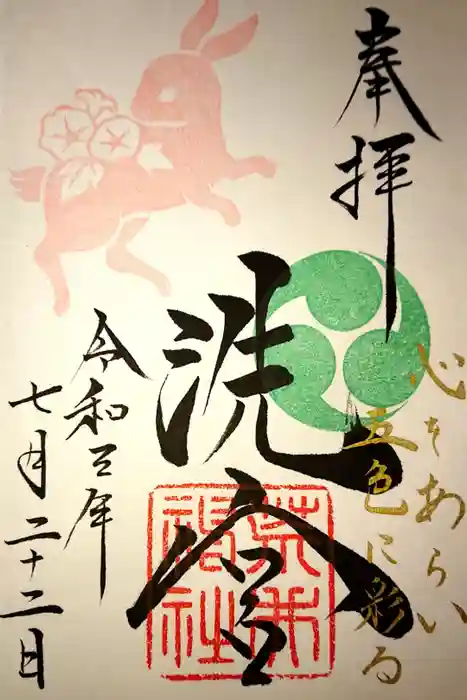 奉拝
心をあらい
五色に彩る
洗
荒木
神社
令和三年
七月二十二日